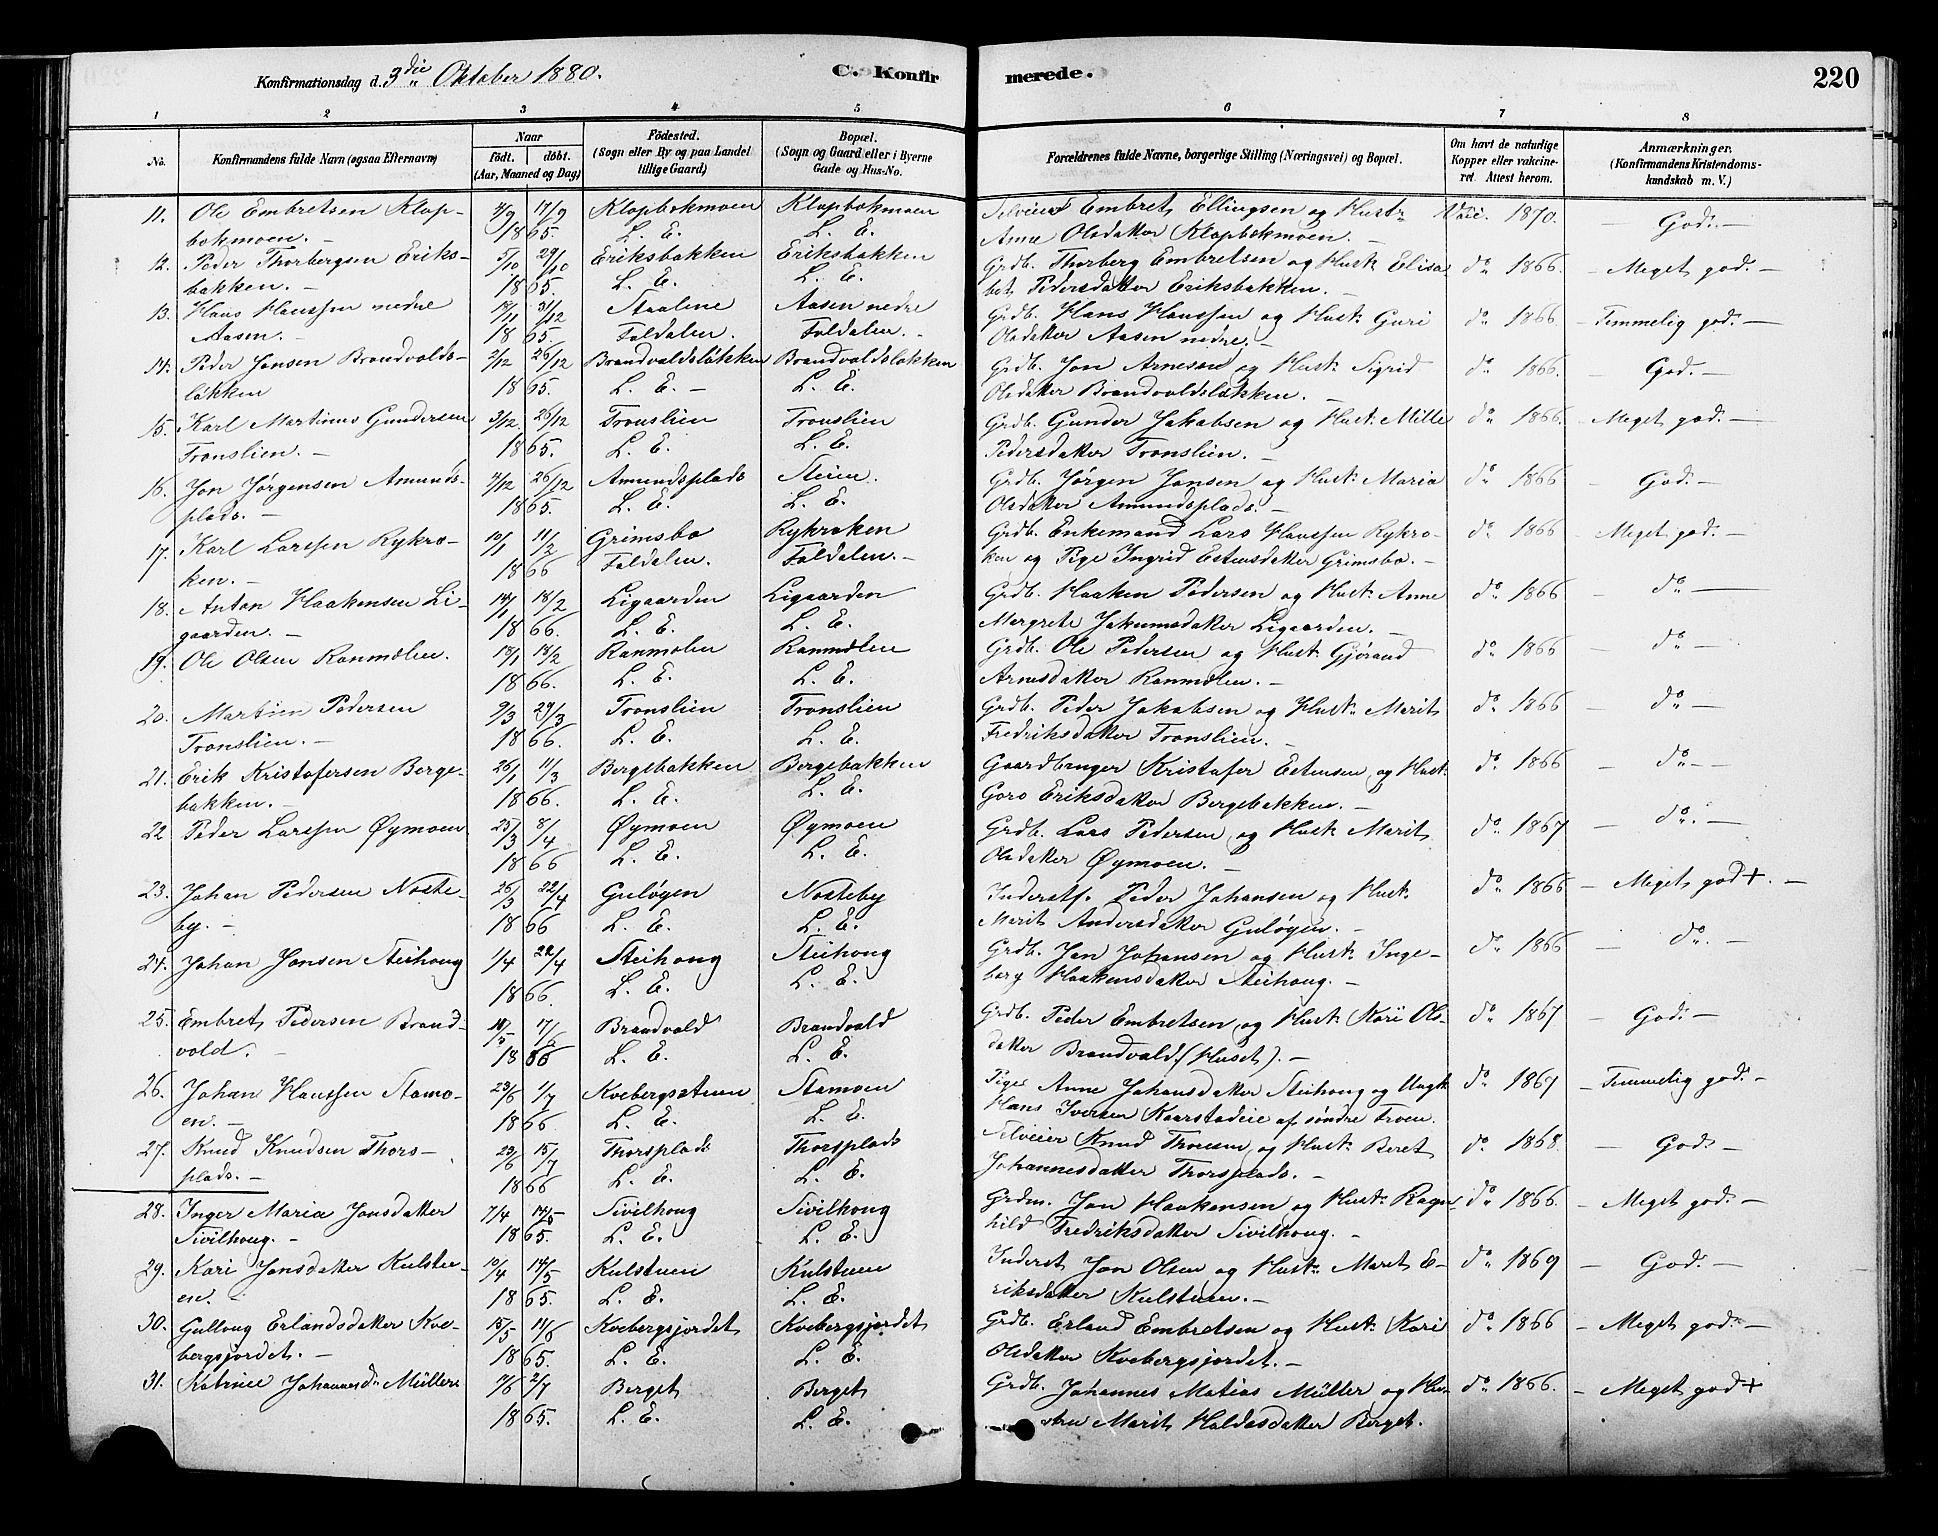 Konfirmationsdag d. 3die Oktober 1880.
C. Konfir
merede.
220
1 2 3 4 5 6 7 8
No.
Konfirmandens fulde Navn (ogsaa Efternavn)
Naar
født. døbt.
(Aar, Maaned og Dag)
Fødested.
(Sogn eller By og paa Landet
tillige Gaard)
Bopæl.
(Sogn og Gaard eller i Byerne
Gade og Hus-No.
Forældrenes fulde Navne, borgerlige Stilling (Næringsvei) og Bopæl.
Om havt de naturlige
Kopper eller vaccine-
ret. Attest herom.
Anmærkninger.
(Konfirmandens Kristendoms-
kundskab m. V.)
11. Ole Embretsen Klop- 17/9 Klopbakmoen Klopbakmoen Embret Ellingsen og Hustr. 1870. - God. -
bakmoen. - 1865 L. E. L. E. Anne Olsdatter Klopbakmoen. -
12. Peder Thorbergsen Eriks- 5/10 29/10 Eriksbakken Eriksbakken Grdb. Thorberg Embretsen og Hust. Elisa- do 1866 - Meget god. -
bakken. - 1865 L. E. L. E. bet Pedersdatter Eriksbakken. -
13. Hans Hanssen nedre 31/12 Aasen nedre Grdb. Hans Hanssen og Hust. Guri do 1866 - Temmelig god. -
Aasen. - 1865 Foldalen. Foldalen. - Olsdatter Aasen nedre. -
14. Peder Jonsen Brandvolds- 2/12 26/12 Brandvoldsløkken Brandvoldsløkken Grdb. Jon Arnesen og Hust. Sigrid do 1866. - God. -
løkken 1865. L. E. - L. E. Olsdatter Brandvoldsløkken. -
15. Karl Martinus Gundersen 3/12 26/12 Tronslien Tronslien Grdb. Gunder Jakobsen og Hust. Mille do 1866. - Meget god. -
Tronslien. - 1865. L. E. L. E. Pedersdatter Tronslien. -
16. Jon Jørgensen Amunds- 26/12 Amundsplads Steien. Grdb. Jørgen Jonsen og Hust. Maria do 1866 - God. -
plads. - 1865. L. E. L. E. Olsdatter Amundsplads. -
17. Karl Larssen Rykro- 10/1 11/3 Grimsbo Rykroken Grdb. Enkemand Lars Hanssen Rykro- do 1866 - Meget god. -
ken. - 1866 Foldalen. Foldalen. - ken og Pige Ingrid Estensdatter Grimsbo. -
18. Anton Haakensen Li- 14/1 18/2 Ligaarden Ligaarden Grdb. Haaken Pedersen og Hust. Anne do 1866 - do -
gaarden. - 1866. L. E. L. E. Margrete Ligaarden. -
19. Ole Olsen Ranmælen. 18/2 Ranmælen Ranmælen Grdb. Ole Pedersen og Hust. Gjørand do 1866 - do -
1866. L. E. L. E. Arnesdatter Ranmælen. -
20. Martin Pedersen 9/3 29/3 Tronslien Tronslien Grdb. Peder Jakobsen og Hust. Marit do 1866 - do -
Tronslien. - 1866. L. E. L. E. Fredriksdatter Tronslien. -
21. Erik Kristofersen Berge- 26/1 11/3 Bergebakken Bergebakken Gaardbruger Kristofer Estensen og Hust. do 1866 - do -
bakken. - 1866. L. E. L. E. Goro Eriksdatter Bergebakken. -
22 Peder Larssen Øymoen 25/3 8/4 Øymoen Øymoen Grdb. Lars Pedersen og Hust. Marit do 1867 - do. -
1866 L. E. L. E. Olsdatter Øymoen. -
23. Johan Pedersen Noste- 26/3 22/4 Guløyen Nosteby Inderstf. Peder Johansen og Hust. do 1866 - Meget god+. -
by. - 1866 L. E. L. E. Marit Andersdatter Guløyen. -
24. Johan Jonsen Steihoug 1/4 22/4 Steihoug Steihoug Grdb. Jon Johansen og Hust. Inge- do 1866 - do. -
1866. L. E. L. E. borg Haakensdatter Steihoug. -
25. Embret Pedersen Brand- Brandvold Brandvold Grdb. Peder Embretsen og Hust. Kari Ols- do 1867 - God. -
vold. - 1866 L. E. L. E. datter Brandvold (Huset). -
26. Johan Hanssen Stamo- 23/6 1/7 Kvebergsstuen Stamoen Pige Anne Johansdatter Steihoug og Ungk. do 1867 - Temmelig god. -
en. - 1866. L. E. L. E. Hans Iversen af søndre
27. Knud Knudsen Thors- 23/6 15/7 Thorsplads Thorsplads Selveier Knud og Hust. Beret do 1868. - God. -
plads. - 1866 L. E. L. E. Johannesdatter Thorsplads. -
28. Inger Maria Jonsdatter 7/4 14/5 Sivilhoug Sivilhoug Grdm. Jon Haakensen og Hust. Ragn- do 1866. - Meget god. -
Sivilhoug. - 1865. L. E. L. E. hild Fredriksdatter Sivilhoug. -
29. Kari Jonsdatter Kulstu- 10/4 14/5 Kulstuen Kulstuen Inderst Jon Olsen og Hust. Marit E- do 1869 - God. -
en. - 1865. L. E. L. E. riksdatter Kulstuen. -
30. Gulloug Erlandsdatter Kve- 15/5 11/6 Kvebergsjordet Kvebergsjordet Grdb. Erland Embretsen og Hust. Kari do 1866 - Meget god. -
bergsjordet. - 1865. L. E. L. E. Olsdatter Kvebergsjordet. -
31. Johannesdr Müller 7/6 2/7 Berget Berget Grdb. Johannes Matias Müller og Hu- do 1866. - Meget god+
1865. L. E. L. E. stru Marit Haldosdatter Berget.